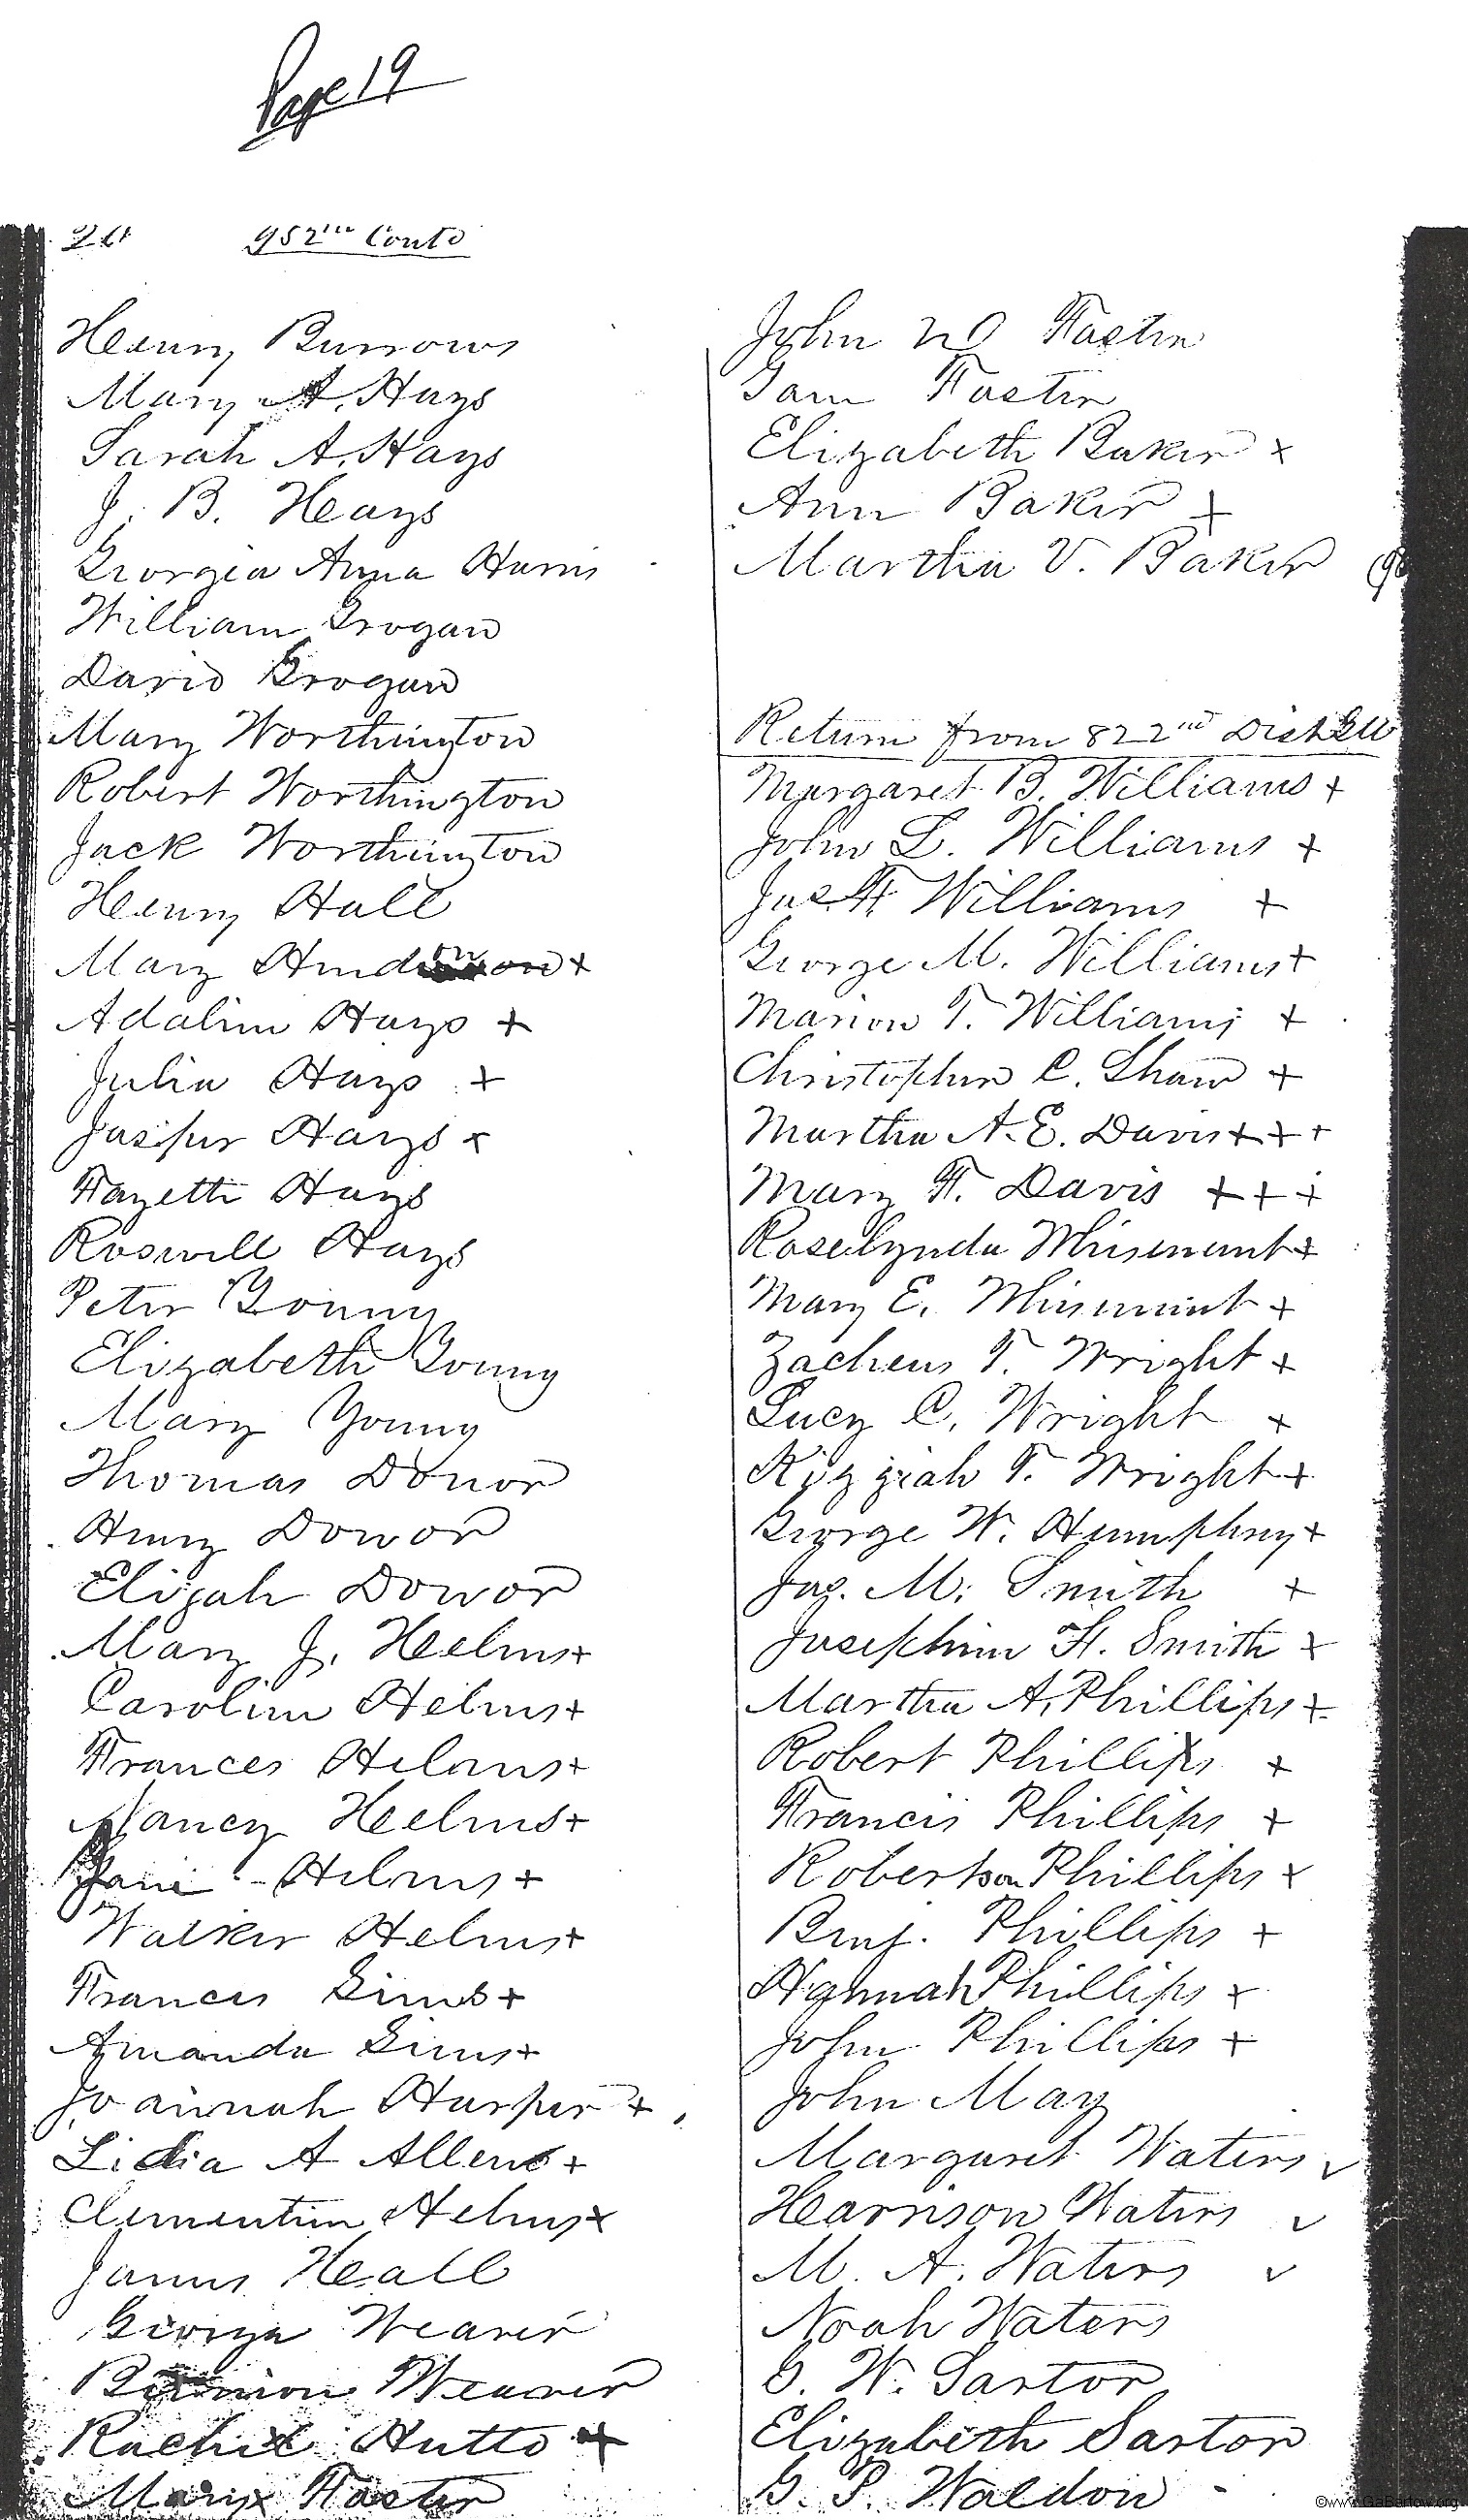 Page 19
952nd Contd
Henry Burrows
Mary A. Hays
Sarah A. Hays
J. B. Heays
Georgia Anna Harris
William Grogan
David Grogan
Mary Worthington
Robert Worthington
Jack Worthington
Henry Hall
Mary +
Adaline Hays +
Julia Hays +
Jasper Hays x
Fayette Hays
Roswell Hays
Peter Young
Elizabeth Young
Mary Young
Thomas Donor
Henry Donor
Elijah Donor
Mary J. Heelms +
Caroline Helms +
Frances Helms +
Nancy Heelms +
Jane Helms +
Walker Helms +
Frances Sims +
Amanda Sims +
Joannah Harper +
Lidia A Allen +
Clementine Helms x
James Heall
George Weaver
Weaver
Rachel Hutto +
Mary Foster
John Foster
Sam Foster
Elizabeth Baker x
Ann Baker +
Martha V. Baker
Return from 822nd Dist GM
Margaret B. Williams +
John L. Williams +
Jas. F. Williams +
George M. Williams +
Marion T. Williams +
Christopher C. Shaw +
Martha A. E. Davis + + +
Mary F. Davis + + +
Roselynda Misenment +
Mary E. Misenment +
Zacheus T. Wright +
Lucy C. Wright +
Kizziah T. Wright +
George W. Humphrey +
Jas. M. Smith +
Josephine H. Smith +
Martha A. Phillips +
Robert Phillips +
Francis Phillips +
Robertson Phillips x
Benj. Phillips +
Hannah Phillips +
John Phillips +
John May
Margaret Waters ✓
Hearrison Waters ✓
M. A. Waters ✓
Noah Waters
G. W. Sartor
Elizabeth Sartor
G. P. Waldon
©www.GaBartow.org